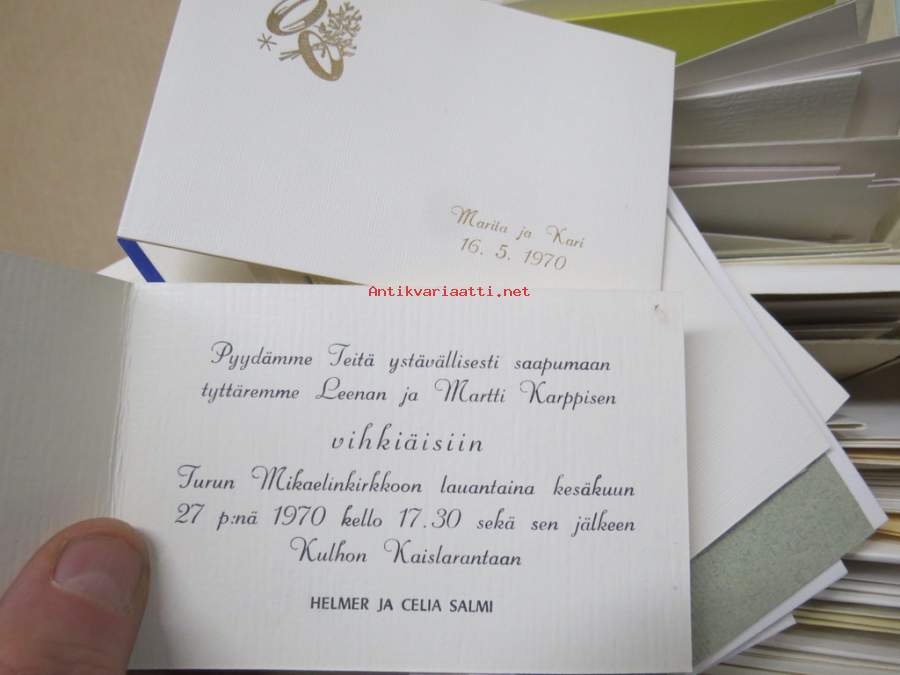 Marita ja Kari
16. 5. 1970
Antikvariaatti.net
Pyydämme Teitä ystävällisesti saapumaan
tyttäremme Leenan ja Martti Karppisen
vihkiäisiin
Turun Mikaelinkirkkoon lauantaina kesäkuun
27 p:nä 1970 kello 17.30 sekä sen jälkeen
Kulhon Kaislarantaan
HELMER JA CELIA SALMI